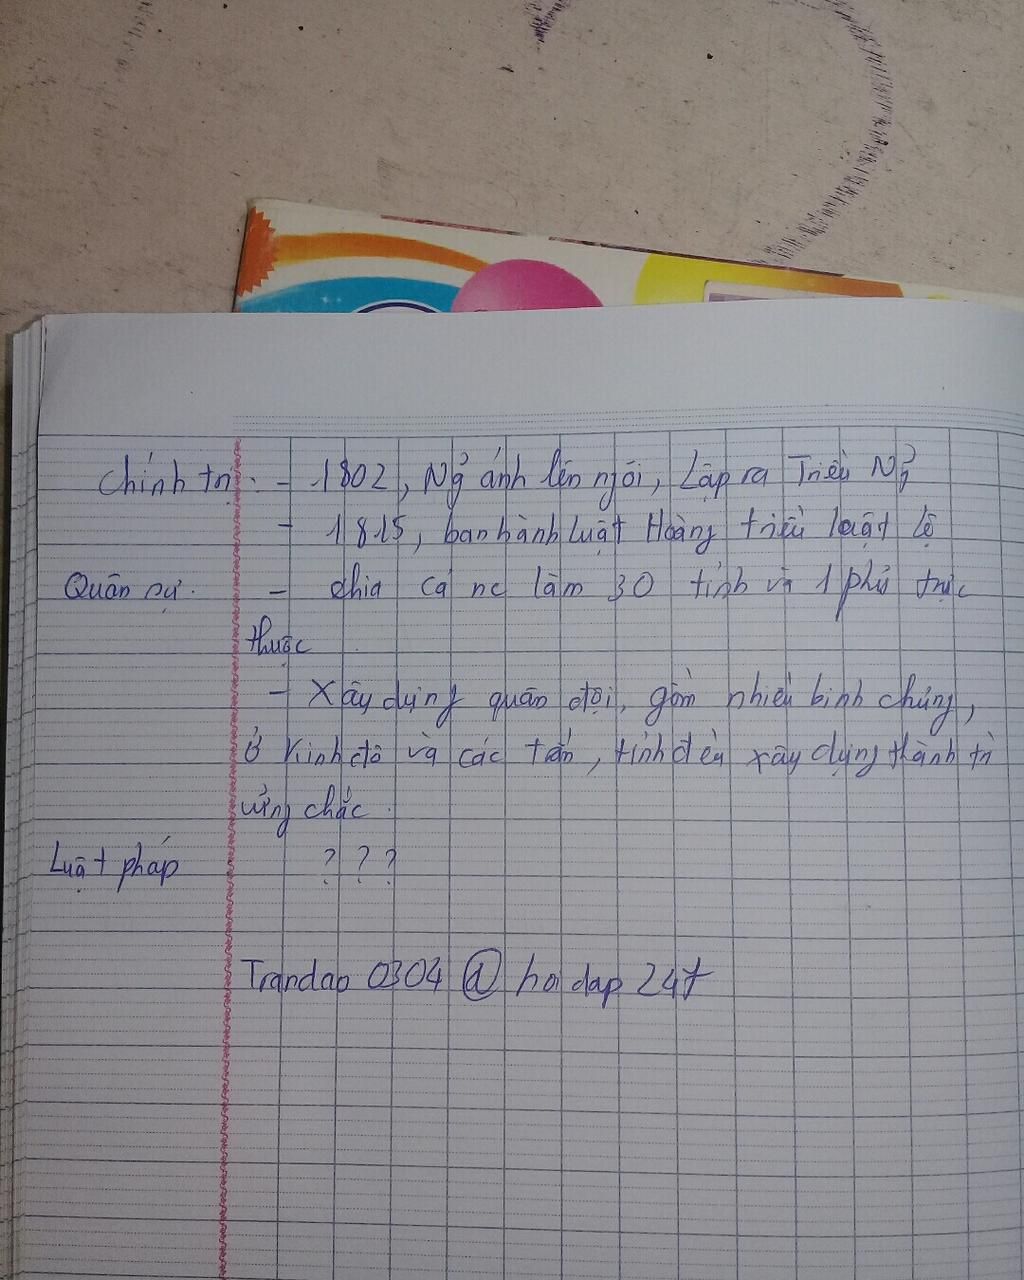 Chính trị: - 1802, Ng̉ ánh lên ngôi, Lập ra Triều Ng̉
- 1815, ban hành luật Hoàng triều luật lệ
Quân sự. - chia cả nc làm 30 tỉnh và 1 phủ trực
thuộc
- Xây dựng quân đội, gồm nhiều binh chủng,
ở Kinh đô và các trấn, tỉnh đều xây dựng thành trì
vững chắc.
Luật pháp ? ? ?
Trandao 0304 @ hoi dap 247